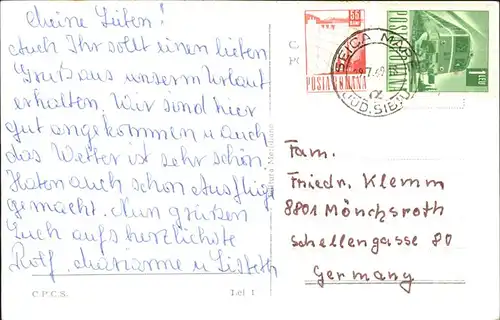 Meine Lieben!
Auch Ihr sollt einen lieben
Gruß aus unserm Urlaub
erhalten. Wir sind hier
gut angekommen u auch
das Wetter ist sehr schön.
Haben auch schon Ausflüge
gemacht. Nun grüßen
Euch aufs herzlichste
Rolf, Marianne u Lisbeth
C.P.C.S.
Lei 1
55
BANI
POSTA ROMANA
1 LEU
SEICA MARE
JUD. SIBIU
Fam.
Friedr. Klemm
8801 Mönchsroth
Schellengasse 80
Germany